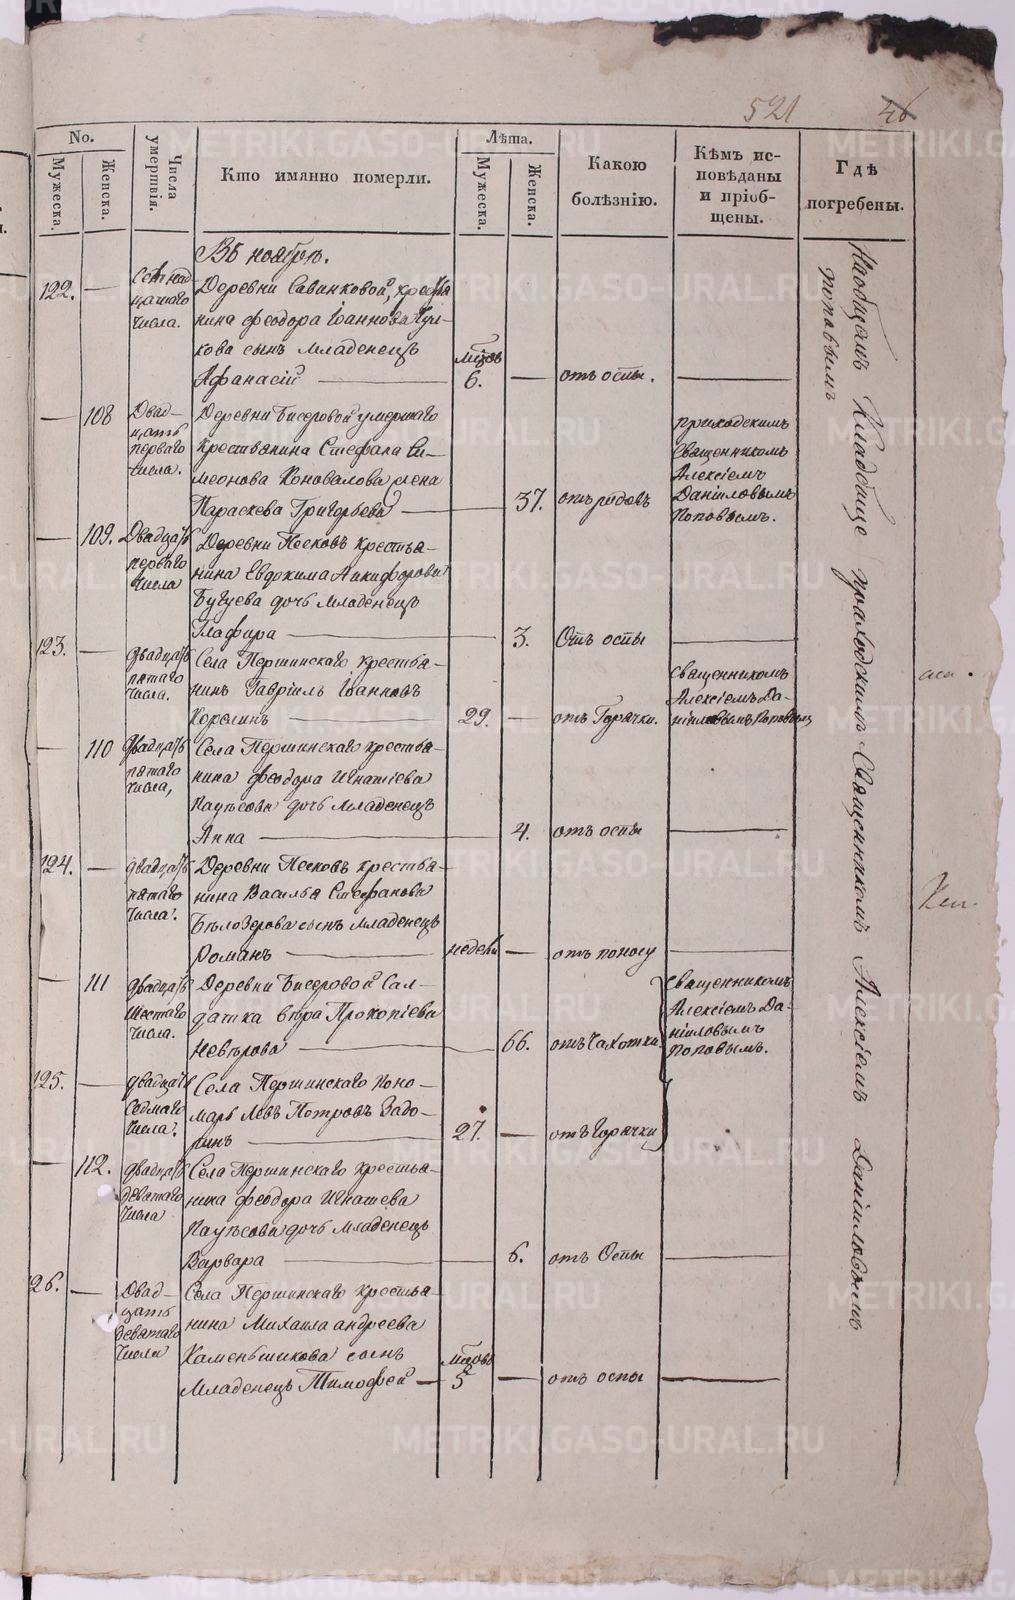 521 46
No.
Мужеска.
Женска.
Числа умертвія.
Кто иманно померли.
Лѣта.
Мужеска.
Женска.
Какою болѣзнію.
Кѣмъ исповѣданы и пріобщены.
Гдѣ погребены.
Въ ноябрѣ.
122. —
числа.
Деревни Савинковой, кресть
нина Феодора Іоаннова
кова сынъ младенецъ
Афанасій — мцовъ 6. — отъ оспы. —
— 108
Двад-
цать
перваго
числа.
Деревни Бисеровой умершаго
крестьянина Стефана Си-
меонова Коновалова жена
Параскева Григорьева — 37. отъ родовъ
приходскимъ
Священникомъ
Алексіемъ
Даніиловымъ
Поповымъ.
— 109.
Двадцать
перваго
числа
Деревни Песковъ крестья-
нина Евдокима Никифорова
Бугуева дочь младенецъ
Глафира — 3. Отъ оспы —
123. —
двадцать
пятаго
числа.
Села Першинскаго крестья-
нинъ Гавріилъ Іоанновъ
Корелинъ — 29. — отъ Горячки.
Священникомъ
Алексіемъ Да-
ніиловымъ Поповымъ
— 110
двадцать
пятаго
числа,
Села Першинскаго крестья-
нина Феодора Игнатіева
дочь младенецъ
Анна — 4. отъ оспы —
124. —
двадцать
пятаго
числа.
Деревни Песковъ крестья-
нина Василья Стефанова
Бѣлозерова сынъ младенецъ
Романъ — недели — отъ поносу —
— 111
двадцать
шестаго
числа.
Деревни Бисеровой Сал-
датка вѣра Прокопіева
Невѣрова — 66. отъ Чахотки.
Священникомъ
Алексіемъ Да-
ніиловымъ
Поповымъ.
125. —
двадцать
Седмаго
числа.
Села Першинскаго Поно-
марь Левъ Петровъ Задо-
ринъ — 27. — отъ Горячки
— 112.
двадцать
девятаго
числа
Села Першинскаго крестья-
нина Феодора Игнатіева
дочь младенецъ
Варвара — 6. отъ Оспы —
126. —
Двад-
цать
девятаго
числа
Села Першинскаго крестья-
нина Михаила андреева
Каменьшикова сынъ
Младенецъ Тимофей — мцовъ 5 — отъ оспы —
Наобщемъ Кладбище приходскимъ Священникомъ Алексіемъ Даніиловымъ
поповымъ
METRIKI.GASO-URAL.RU